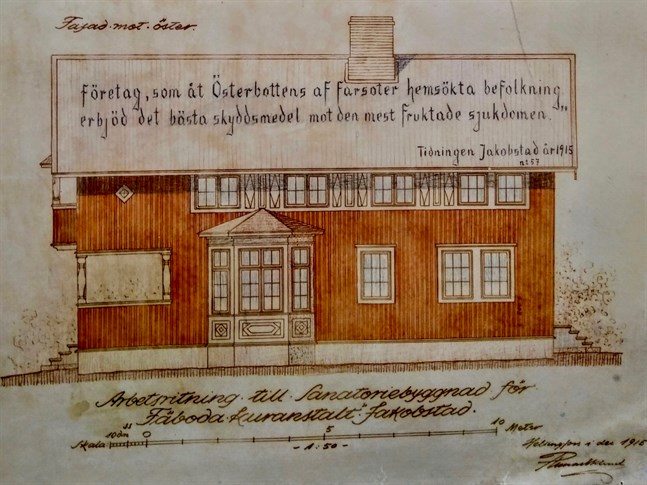 Fasad mot öster.
företag, som åt Österbottens af farsoter hemsökta befolkning
erbjöd det bästa skyddsmedel mot den mest fruktade sjukdomen."
Tidningen Jakobstad år 1915
nº 57
Arbetsritning till Sanatoriebyggnad för
Fäboda Kuranstalt. Jakobstad.
Skala 10 dm 0 5 10 Meter
- 1:50 -
Helsingfors i dec 1915